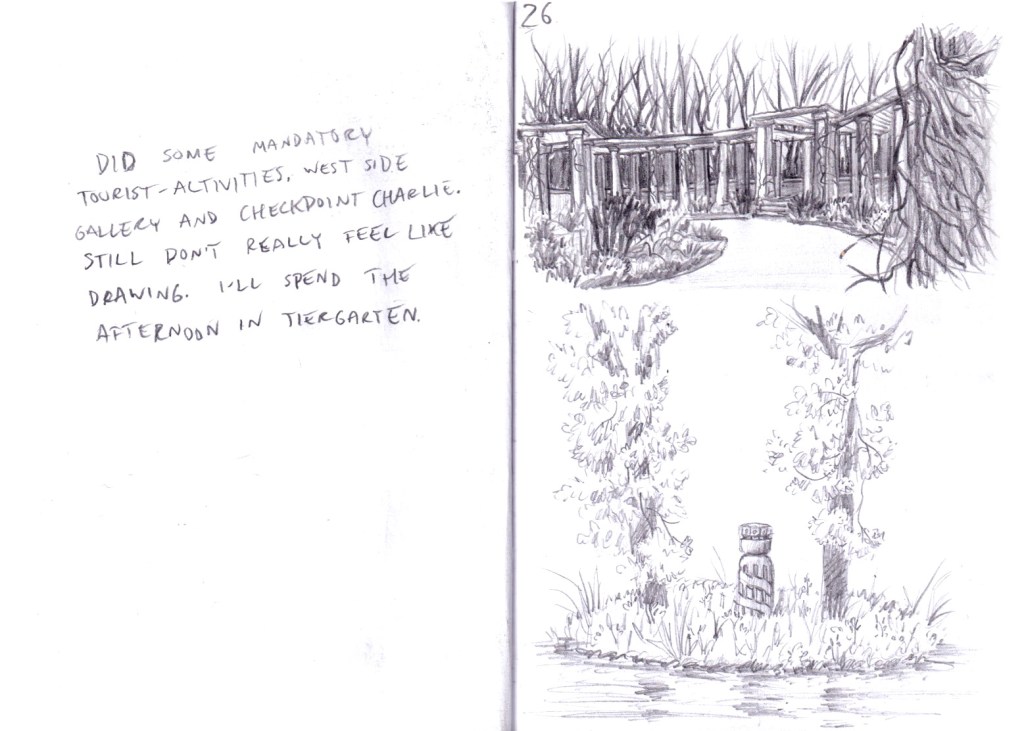 DID SOME MANDATORY
TOURIST-ACTIVITIES, WEST SIDE
GALLERY AND CHECKPOINT CHARLIE.
STILL DON'T REALLY FEEL LIKE
DRAWING. I'LL SPEND THE
AFTERNOON IN TIERGARTEN.
26